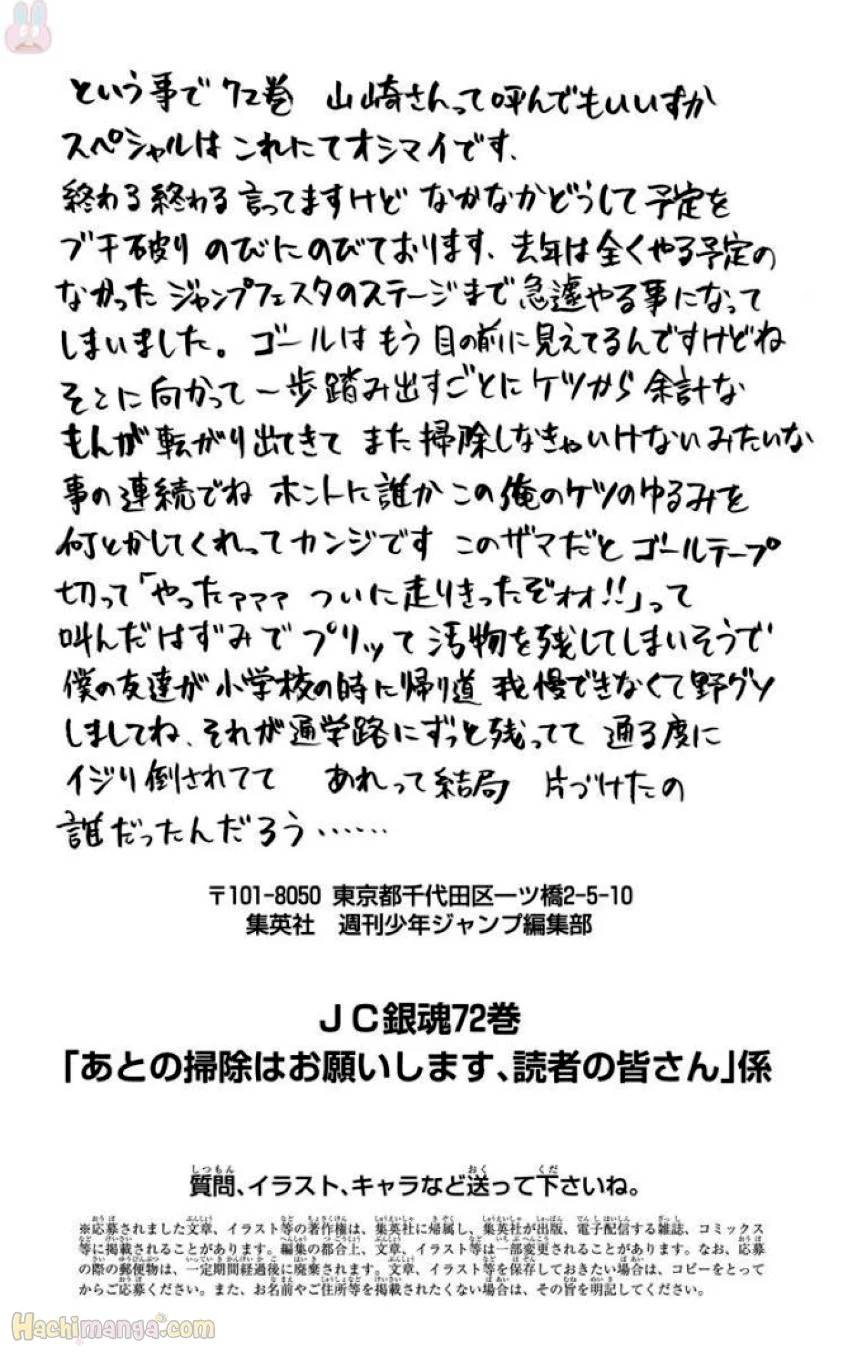 という事で72巻 山崎さんって呼んでもいいすか
スペシャルは これにてオシマイです、
終わる終わる言ってますけど なかなかどうして予定を
ブチ破り のびにのびております、去年は全くやる予定の
なかった ジャンプフェスタのステージまで 急遽やる事になって
しまいました。ゴールはもう目の前に見えてるんですけどね
そこに向かって一歩踏み出すごとにケツから 余計な
もんが転がり出てきて また掃除しなきゃいけないみたいな
事の連続でね ホントに誰か この俺のケツのゆるみを
何とかしてくれってカンジです このザマだと ゴールテープ
切って「やったァァァ ついに走りきったぞォォ!!」って
叫んだはずみで プリッて 汚物を残してしまいそうで
僕の友達が小学校の時に帰り道 我慢できなくて野グソ
しましてね、それが通学路にずっと残ってて 通る度に
イジり倒されてて あれって結局 片づけたの
誰だったんだろう……
〒101-8050 東京都千代田区一ツ橋2-5-10
集英社 週刊少年ジャンプ編集部
JC銀魂72巻
「あとの掃除はお願いします、読者の皆さん」係
質問、イラスト、キャラなど送って下さいね。
※応募されました文章、イラスト等の著作権は、集英社に帰属し、集英社が出版、電子配信する雑誌、コミックス
等に掲載されることがあります。編集の都合上、文章、イラスト等は一部変更されることがあります。なお、応募
の際の郵便物は、一定期間経過後に廃棄されます。文章、イラスト等を保存しておきたい場合は、コピーをとって
からご応募ください。また、お名前やご住所等を掲載されたくない場合は、その旨を明記してください。
Hachimanga.com